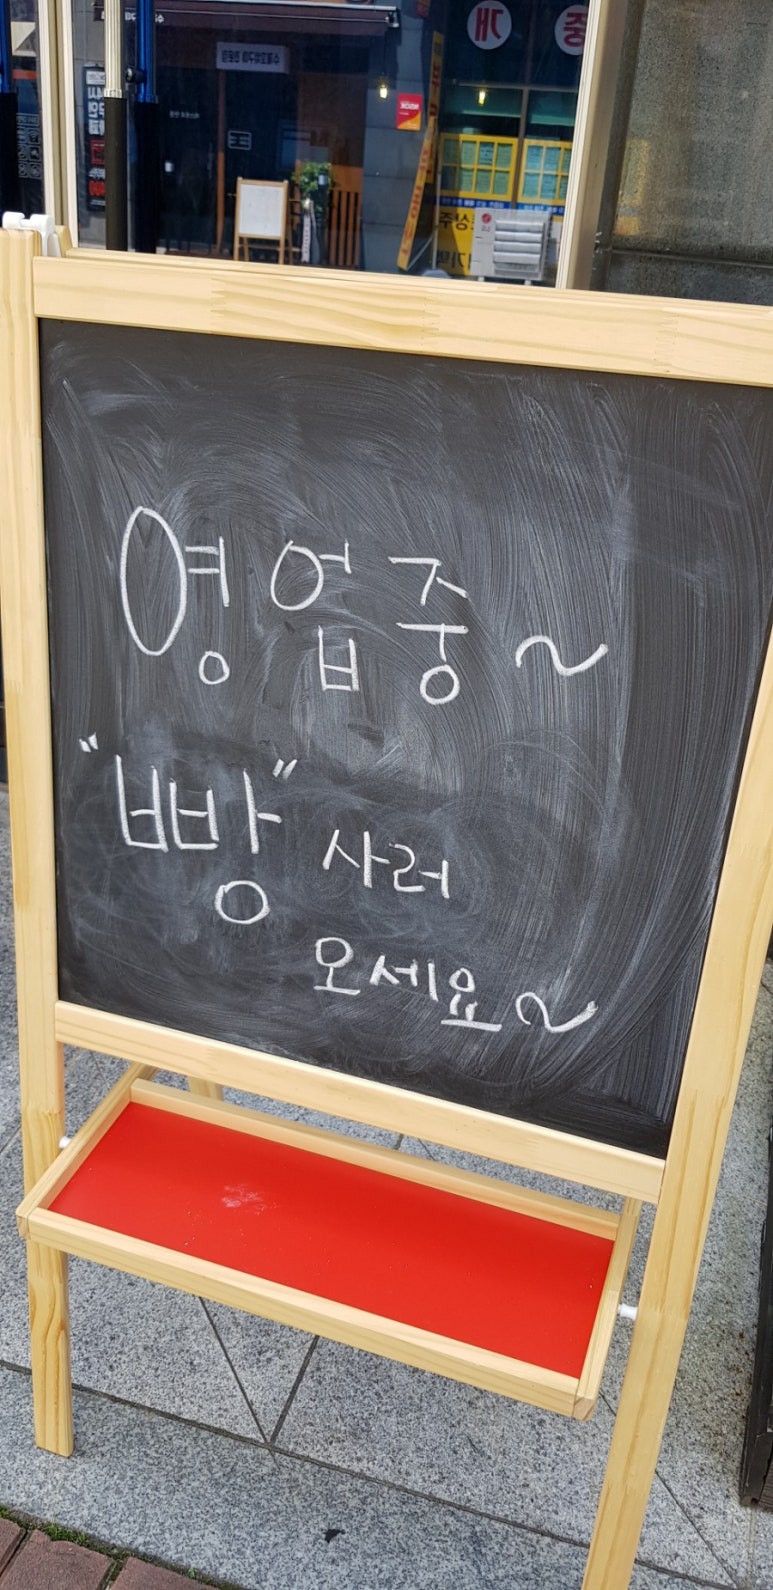 영업중~
"빵" 사러
오세요~